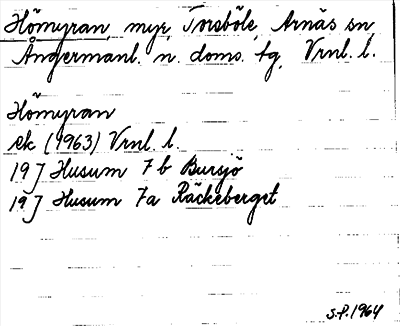 Hömyran, myr, Torsböle, Arnäs sn,
Ångermanl. n. doms. tg, Vrnl. l.
Hömyran
ek (1963) Vrnl. l.
19 J Husum 7 b Bursjö
19 J Husum 7a Räckeberget
S.P. 1964